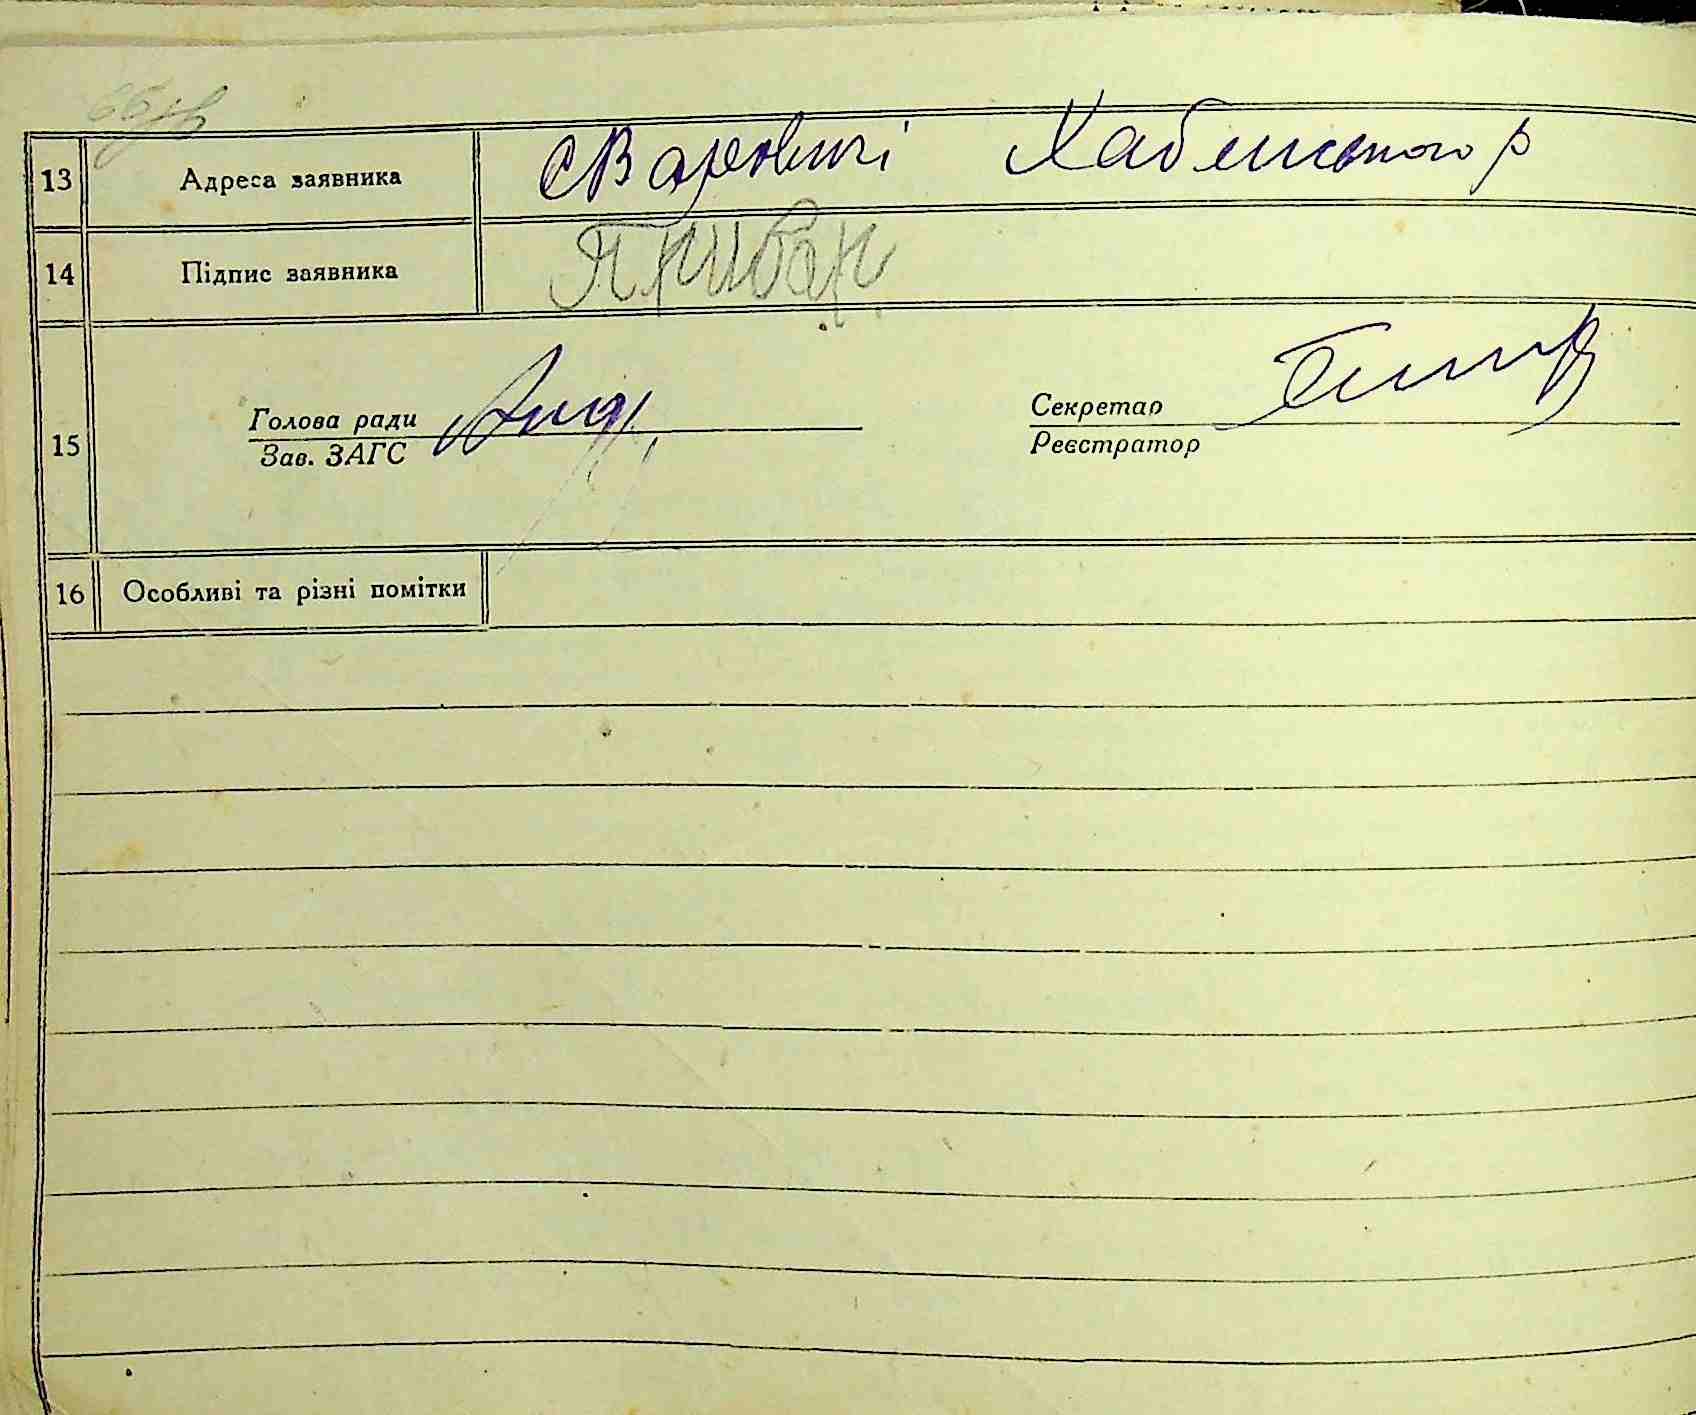 66зв
13 Адреса заявника с Варовичі Хабенського р
14 Підпис заявника Прибор
15 Голова ради
Зав. ЗАГС
Секретар
Реєстратор
16 Особливі та різні помітки